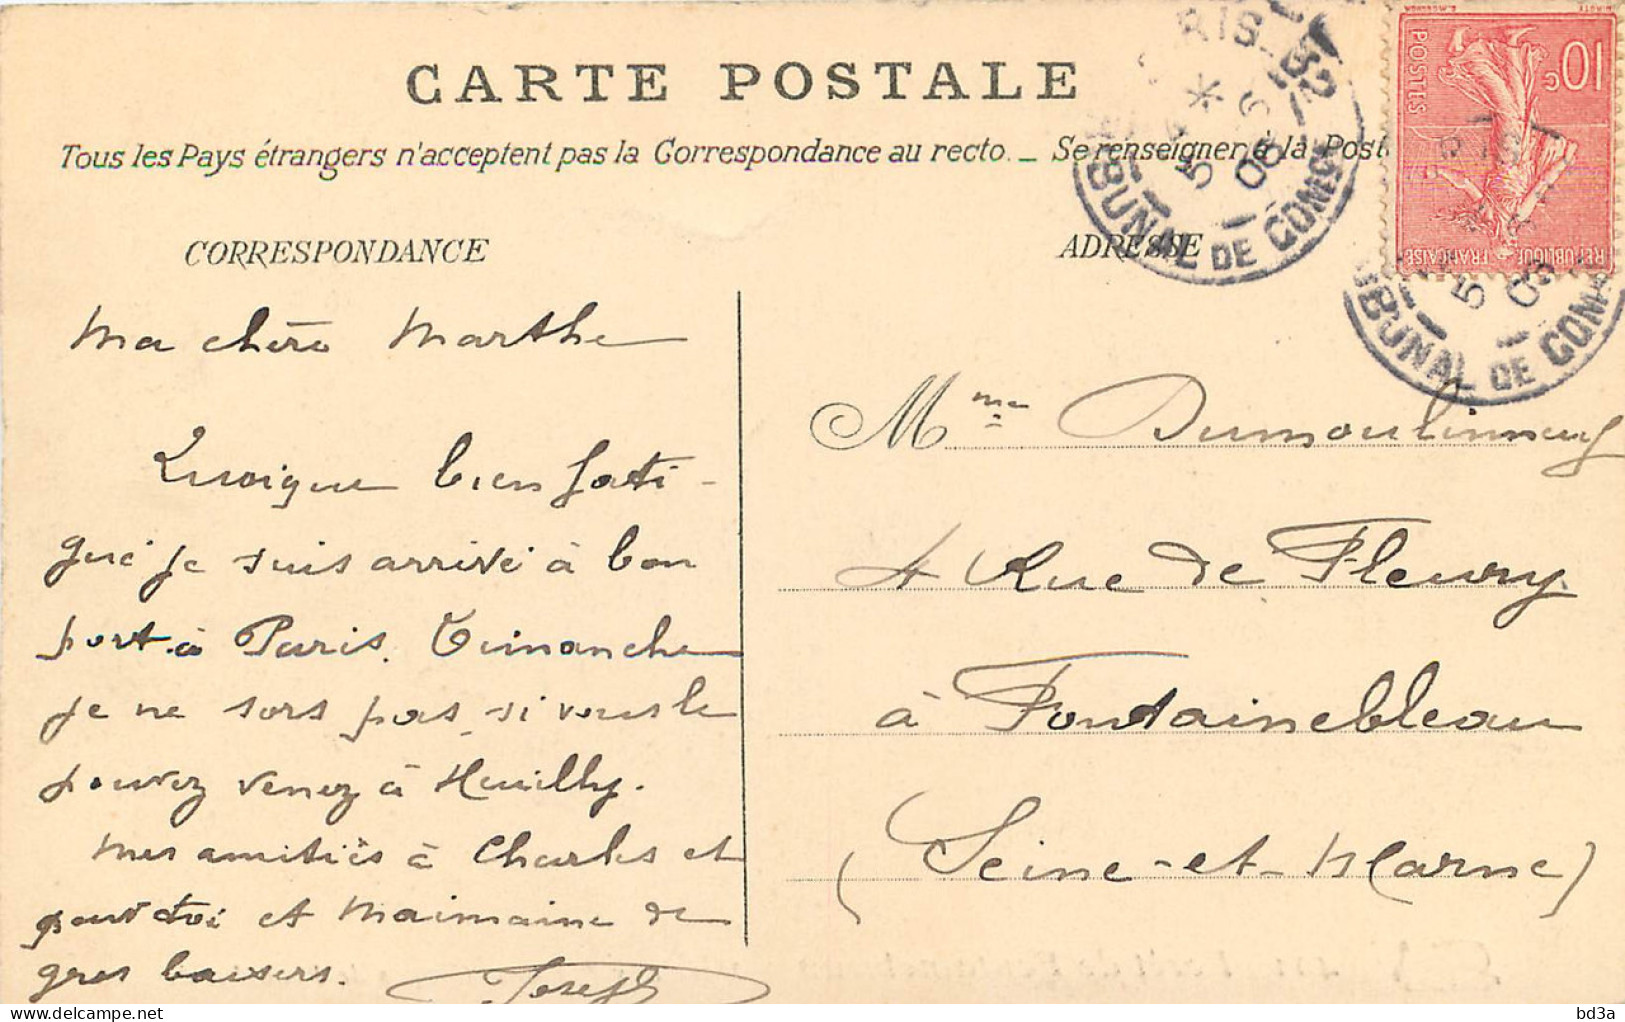 CARTE POSTALE
Tous les Pays étrangers n'acceptent pas la Correspondance au recto. _ Se renseigner à la Poste
CORRESPONDANCE
Ma chère Marthe
Quoique bien fati-
gué je suis arrivé à bon
port à Paris. Dimanche
je ne sors pas, si vous le
pouvez venez à Neuilly.
Mes amitiés à Charles et
pour toi et Maimaine de
gros baisers. Joseph
ADRESSE
Mme
4 Rue de Fleury
à Fontainebleau
(Seine-et-Marne)
10c
POSTES
REPUBLIQUE FRANÇAISE
RIS-B2
5
08
BUNAL DE COM
5
08
BUNAL DE COM
bd3a
delcampe.net